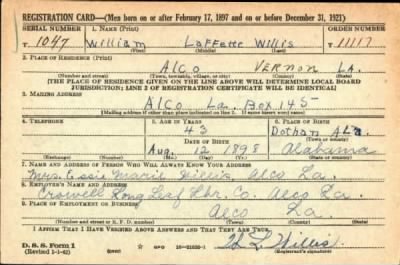 REGISTRATION CARD—(Men born on or after February 17, 1897 and on or before December 31, 1921)
SERIAL NUMBER 1. NAME (Print) ORDER NUMBER
T 1047 William LaFfette Willis T 11117
(First) (Middle) (Last)
2. PLACE OF RESIDENCE (Print)
Alco VERNON LA.
(Number and street) (Town, township, village, or city) (County) (State)
[THE PLACE OF RESIDENCE GIVEN ON THE LINE ABOVE WILL DETERMINE LOCAL BOARD
JURISDICTION; LINE 2 OF REGISTRATION CERTIFICATE WILL BE IDENTICAL]
3. MAILING ADDRESS
Alco La. Box 145
[Mailing address if other than place indicated on line 2. If same insert word same]
4. TELEPHONE 5. AGE IN YEARS 6. PLACE OF BIRTH
43 Dothan Ala.
DATE OF BIRTH (Town or county)
Aug. 12 1898 Alabama
(Exchange) (Number) (Mo.) (Day) (Yr.) (State or country)
7. NAME AND ADDRESS OF PERSON WHO WILL ALWAYS KNOW YOUR ADDRESS
Mrs. Essie Marie Willis, Alco La.
8. EMPLOYER'S NAME AND ADDRESS
Crowell Long Leaf Lbr. Co. Alco La.
9. PLACE OF EMPLOYMENT OR BUSINESS
Alco La.
(Number and street or R. F. D. number) (Town) (County) (State)
I AFFIRM THAT I HAVE VERIFIED ABOVE ANSWERS AND THAT THEY ARE TRUE.
D. S. S. Form 1
(Revised 1-1-42) (over) 16—21630-1 W L Willis
(Registrant's signature)